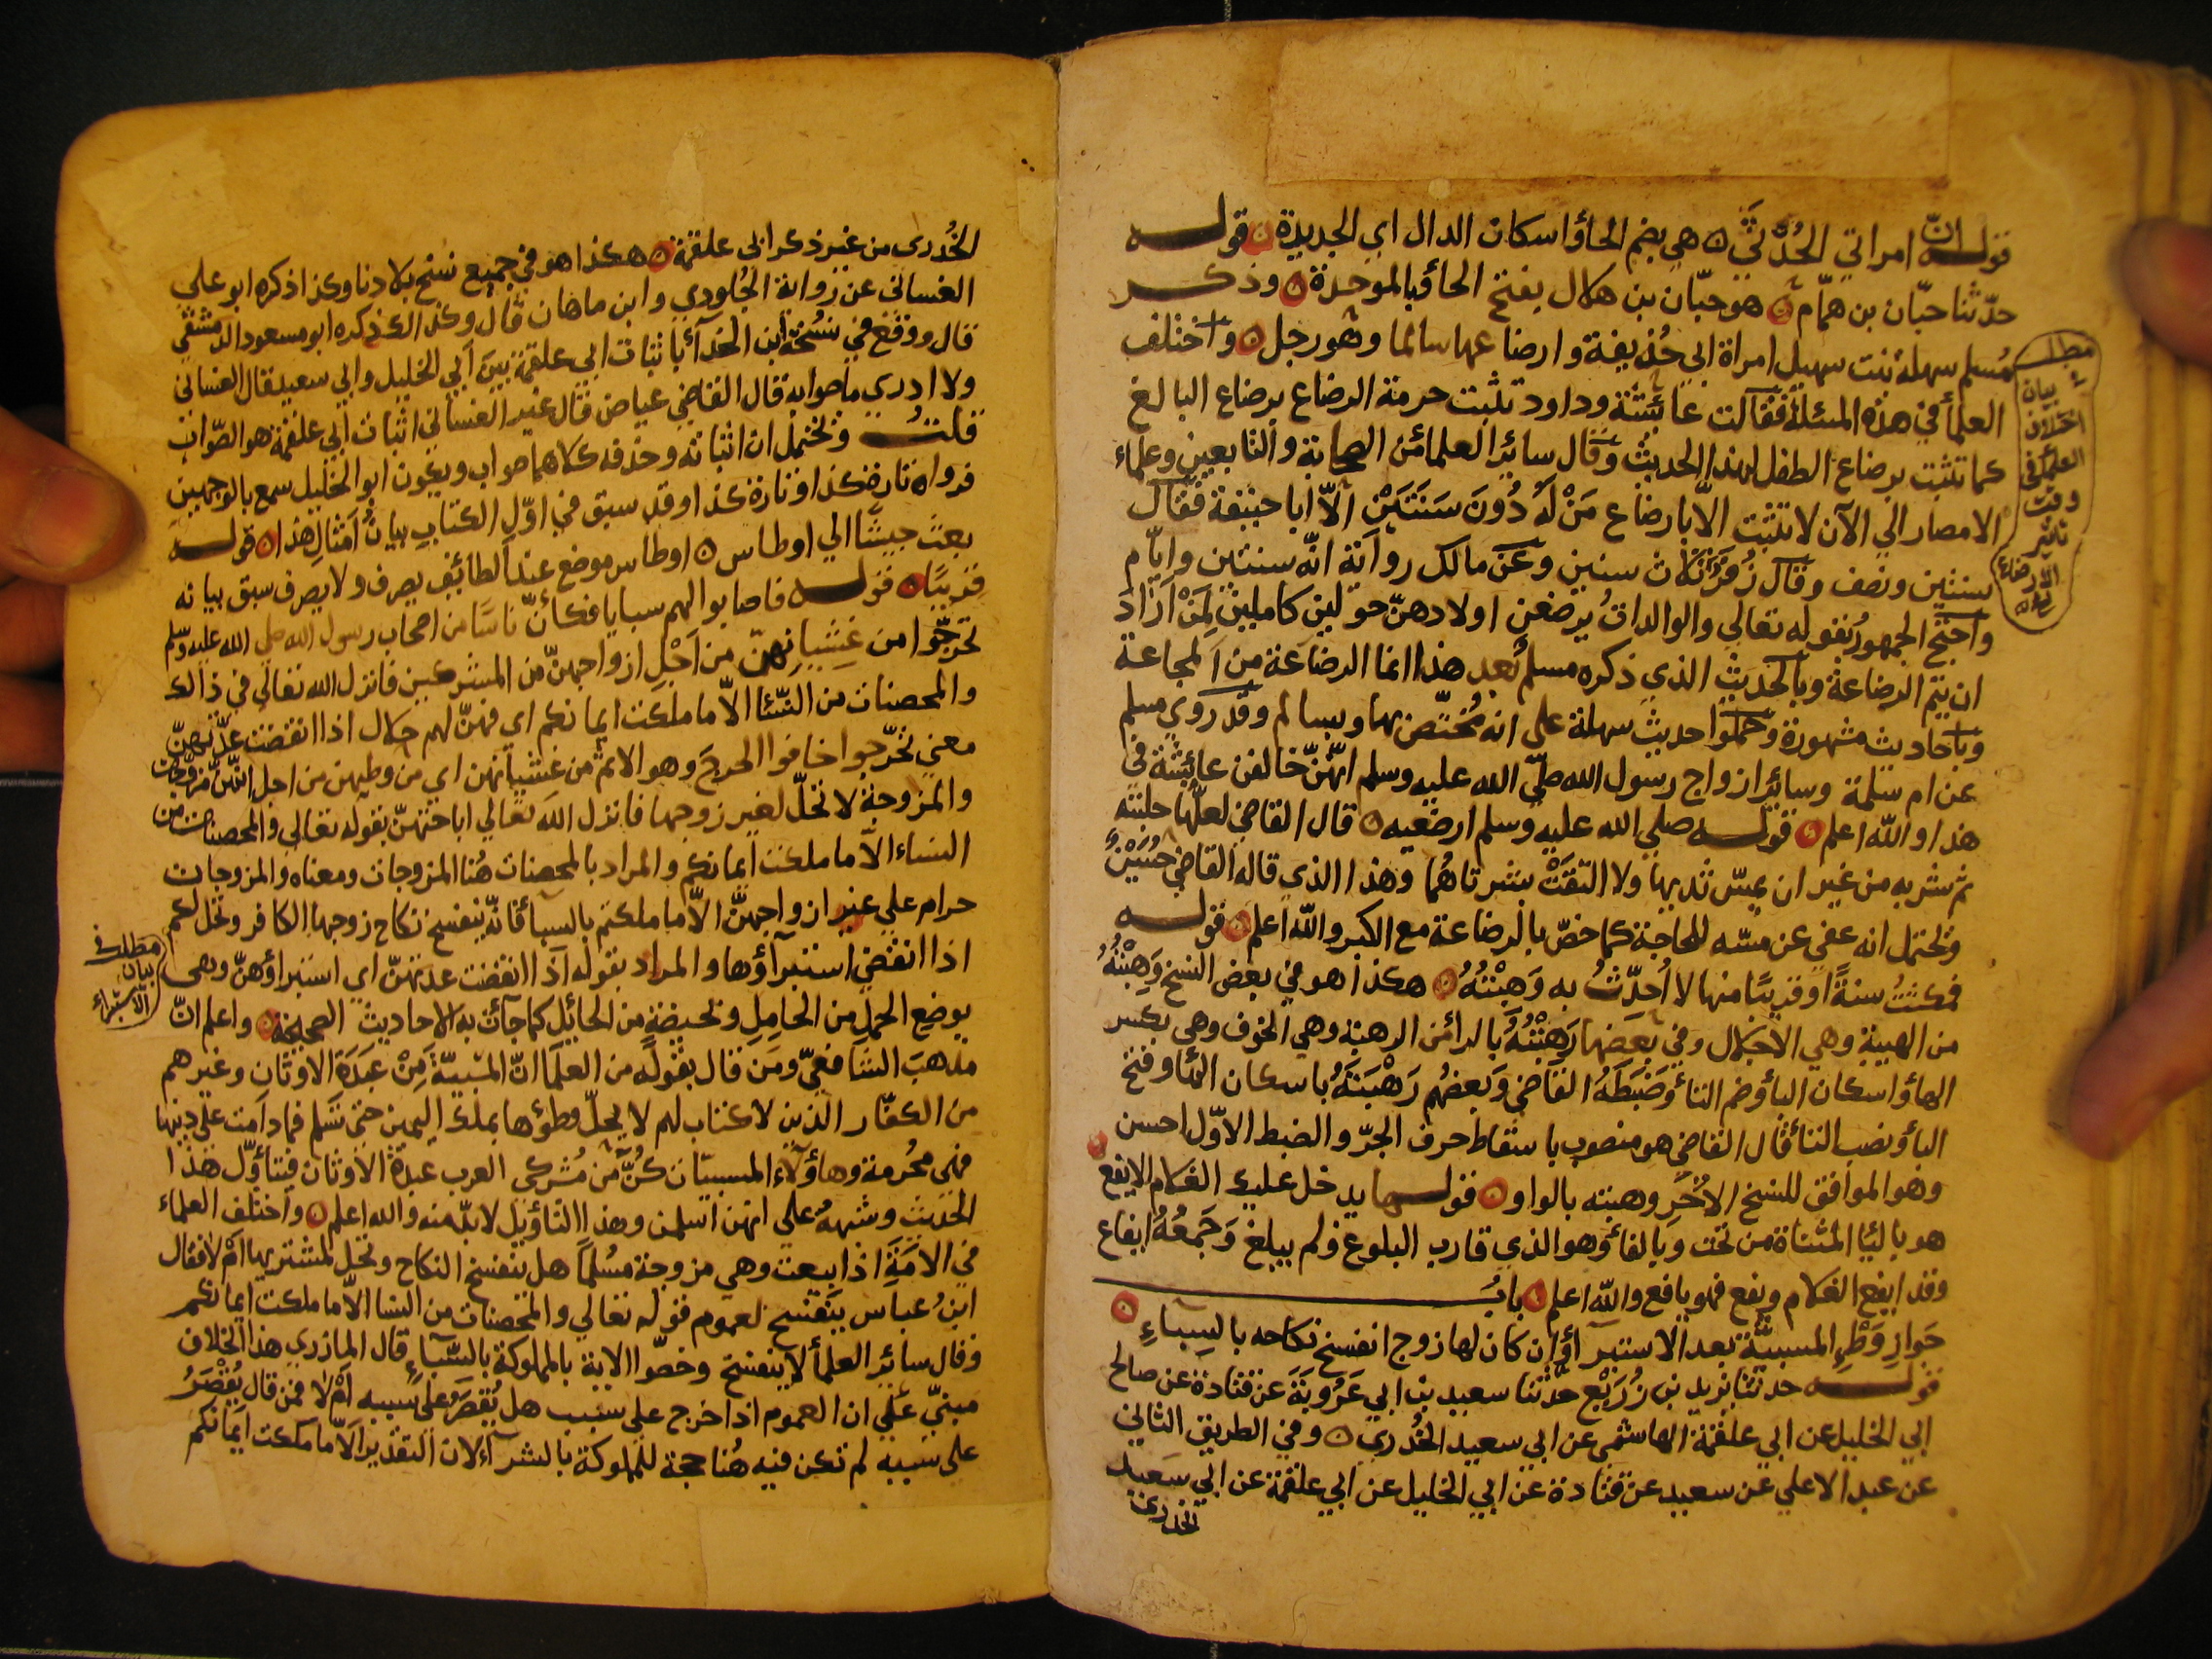 قوله ان امراتي الحُدْثَي ه هي بضم الحاؤ اسكان الدال اي الجديدة ه قوله
حدّثنا حبّان بن همّام ه هو حبّان بن هلال بفتح الحاؤ بالموحدة ه وذكر
مُسلم سهلة بنت سهيل امراة ابي حُذيفة وارضاعها سالما وهو رجل ه واختلف
العلمأ في هذه المسئلة فقالت عائشة وداود تثبت حرمة الرضاع برضاع البالغ
كما تثبت برضاع الطفل لهذا الحديث وقال سائر العلمأ من الصحابة والتابعين وعلماء
الامصار الي الآن لا تثبت الّا بارضاع مَنْ لَهُ دُونَ سَنَتَيْنِ الّا ابا حنيفة فقال
سنتين ونصف وقال زُفَرْ ثلاث سنين وعن مالك رواية انّه سنتين وايّام
واحتج الجمهورُ بقوله تعالي والوالداتُ يرضعن اولادهنّ حولين كاملين لِمَنْ اَرَادَ
ان يتم الرضاعة وبالحديث الذي ذكره مسلم بَعد هذا انما الرضاعة من المجاعة
وباحاديث مشهورة وحملوا حديث سهلة علي انه مُختصّ بها وبسالم وقد روي مسلم
عن ام سلمة وسائر ازواج رسول الله صلّي الله عليه وسلم انهّنّ خالفن عائشة في
هذا والله اعلم ه قوله صلي الله عليه وسلم ارضعيه ه قال القاضي لعلّها حلبته
ثم شربه من غير ان يمسّ ثديها ولا التقَتْ بشرتاهُما وهذا الذي قاله القاضي حُسَنٌ
وتحتمل انه عفي عن مسّه للحاجة كما خصّ بالرضاعة مع الكبر والله اعلم ه قوله
فمكثتُ سنةً او قريبًا منها لا اُحَدِّثُ به وَهِبْتُهُ ه هكذا هو في بعض النسخ وَهِبْتُهُ
من الهيبة وهي الاجلال وفي بعضها رَهِبْتُهُ بالرأ من الرهبة وهي الخوف وهي بكسر
الهأو اسكان البأو ضم التأ وَضَبَطَهُ القاضي وَبعضهُم رَهْبَتَهُ باسكان الهأ وفتح
البأو نصب التأ قال القاضي هو منصوب باسقاط حرف الجرّ والضبط الاوّل احسن
وهو الموافق للنسخ الاُخَرِ وهبته بالواو ه قولها يدخل عليك الغلام الايفع
هو باليأ المثناة من تحت وبالفاؤهو الذي قارب البلوغ ولم يبلغ وَجَمعُهُ ايفاع
وقد ايفع الغلام ويفع فهو يافع والله اعلم ه بابُ
جَوازِ وَطْئِ المسبيّة بعد الاستبرآؤان كان لها زوج انفسخ نكاحه بالسبآءِ ه
قوله حدثنا يزيد بن زُرَيْع حدّثنا سعيد بن ابي عَرُوبَةَ عن قتادة عن صالح
ابي الخليل عن ابي علقمة الهاشمي عن ابي سعيد الخُدري ه وفي الطريق الثاني
عن عبد الاعلي عن سعيد عن قتادة عن ابي الخليل عن ابي علقمة عن ابي سَعيد
الخدري
مطلب
بيان
اختلاف
العلمأ في
وقت
تاثير
الارضاع
الخُدري من غير ذكر ابي علقمة ه هكذا هو في جميع نسخ بلادنا وكذا ذكره ابو علي
الغساني عن رواية الجُلودي وابن ماهان قال وكذالك ذكره ابو مسعود الدمشقي
قال ووقع في نسخة ابن الحذآء باثبات ابي علقمة بين ابي الخليل وابي سعيد قال الغساني
ولا ادري ما صوابه قال القاضي عياض قال غير الغساني اثبات ابي علقمة هو الصّواب
قلتُ وتحتمل ان اثباته وحذفه كلاهما صواب ويكون ابو الخليل سمع بالوجهين
فرواه تارة كذا وتارة كذا وقد سبق في اوّل الكتاب بيانُ اَمْثالِ هٰذا ه قوله
بعث جيشًا الي اوطاس ه اوطاس موضع عند الطائف يصرف ولا يصرف سبق بيانه
قريبًا ه قوله فاصابوا لهم سبايا فكأنّ ناسًا من اصحاب رسول الله صلي الله عليه وسلم
تحرجّوا من غِشيانِهنّ من اَجْلِ ازواجهنّ من المشركين فانزل الله تعالي في ذالك
والمحصنات من النّسَأ الّا ما ملكت ايمانكم اي فهنّ لهم حلال اذا انقضت عدّتهنّ
معني تحرّجوا خافوا الحرج وهو الاثم من غِشيانهن اي من وطيهن من اجل انّهنّ مزوّجات
والمزوجة لا تحلّ لغير زوجها فانزل الله تعالي اباحتهنّ بقوله تعالي والمحصنات من
النساء الّا ما ملكت ايمانكم والمراد بالمحصنات هُنا المزوجات ومعناه والمزوجات
حرام علي غير ازواجهنّ الّا ما ملكتم بالسبأ فانّه ينفسخ نكاح زوجها الكافر وتحل لكم
اذا انقضي استبرآؤها والمراد بقوله اذا انقضت عدتهنّ اي استبراؤهنّ وهي
بوضع الحمل من الحامِلِ وبحيضةٍ من الحائل كما جآئت به الاحاديث الصحيحة ه واعلم انّ
مذهب الشافعيّ ومن قال بقوله من العلمَا انّ المسبيّةَ مِنْ عَبَدَةِ الاوثان وغيرهم
من الكفّار الذين لا كتاب لهم لا يحلّ وطؤها بملك اليمين حتي تسلم فما دامت علي دينها
فهي محُرمة وهاؤلآءِ المسبيّات كُنَّ من مُشركي العرب عبدة الاوثان فيتأوّل هذا
الحديث وشبههُ علي انهن اسلمن وهذا التاويل لابدّ منه والله اعلم ه واختلف العلماء
في الامَةِ اذا بيعت وهي مزوجة مُسْلِمًا هل ينفسخ النكاح وتحل لمشتريها اَمْ لا فقال
ابنُ عباس ينفسخ لعموم قوله تعالي والمحصنات من النسا الّا ما ملكت ايمانكم
وقال سائر العلمأ لا ينفسخ وخصّوا الاية بالمملوكة بالسّبآءِ قال المازري هذا الخلاف
مبنيّ عَلي ان العموم اذا خرج علي سبب هل يُقصَرُ علي سببه اَمْ لا فمن قال يُقْصَرُ
علي سببه لم تكن فيه هُنا حجة للمملوكة بالشرآء لان التقدير الّا ما ملكت ايمَانكم
مطلب في
بيان
الاستبراء